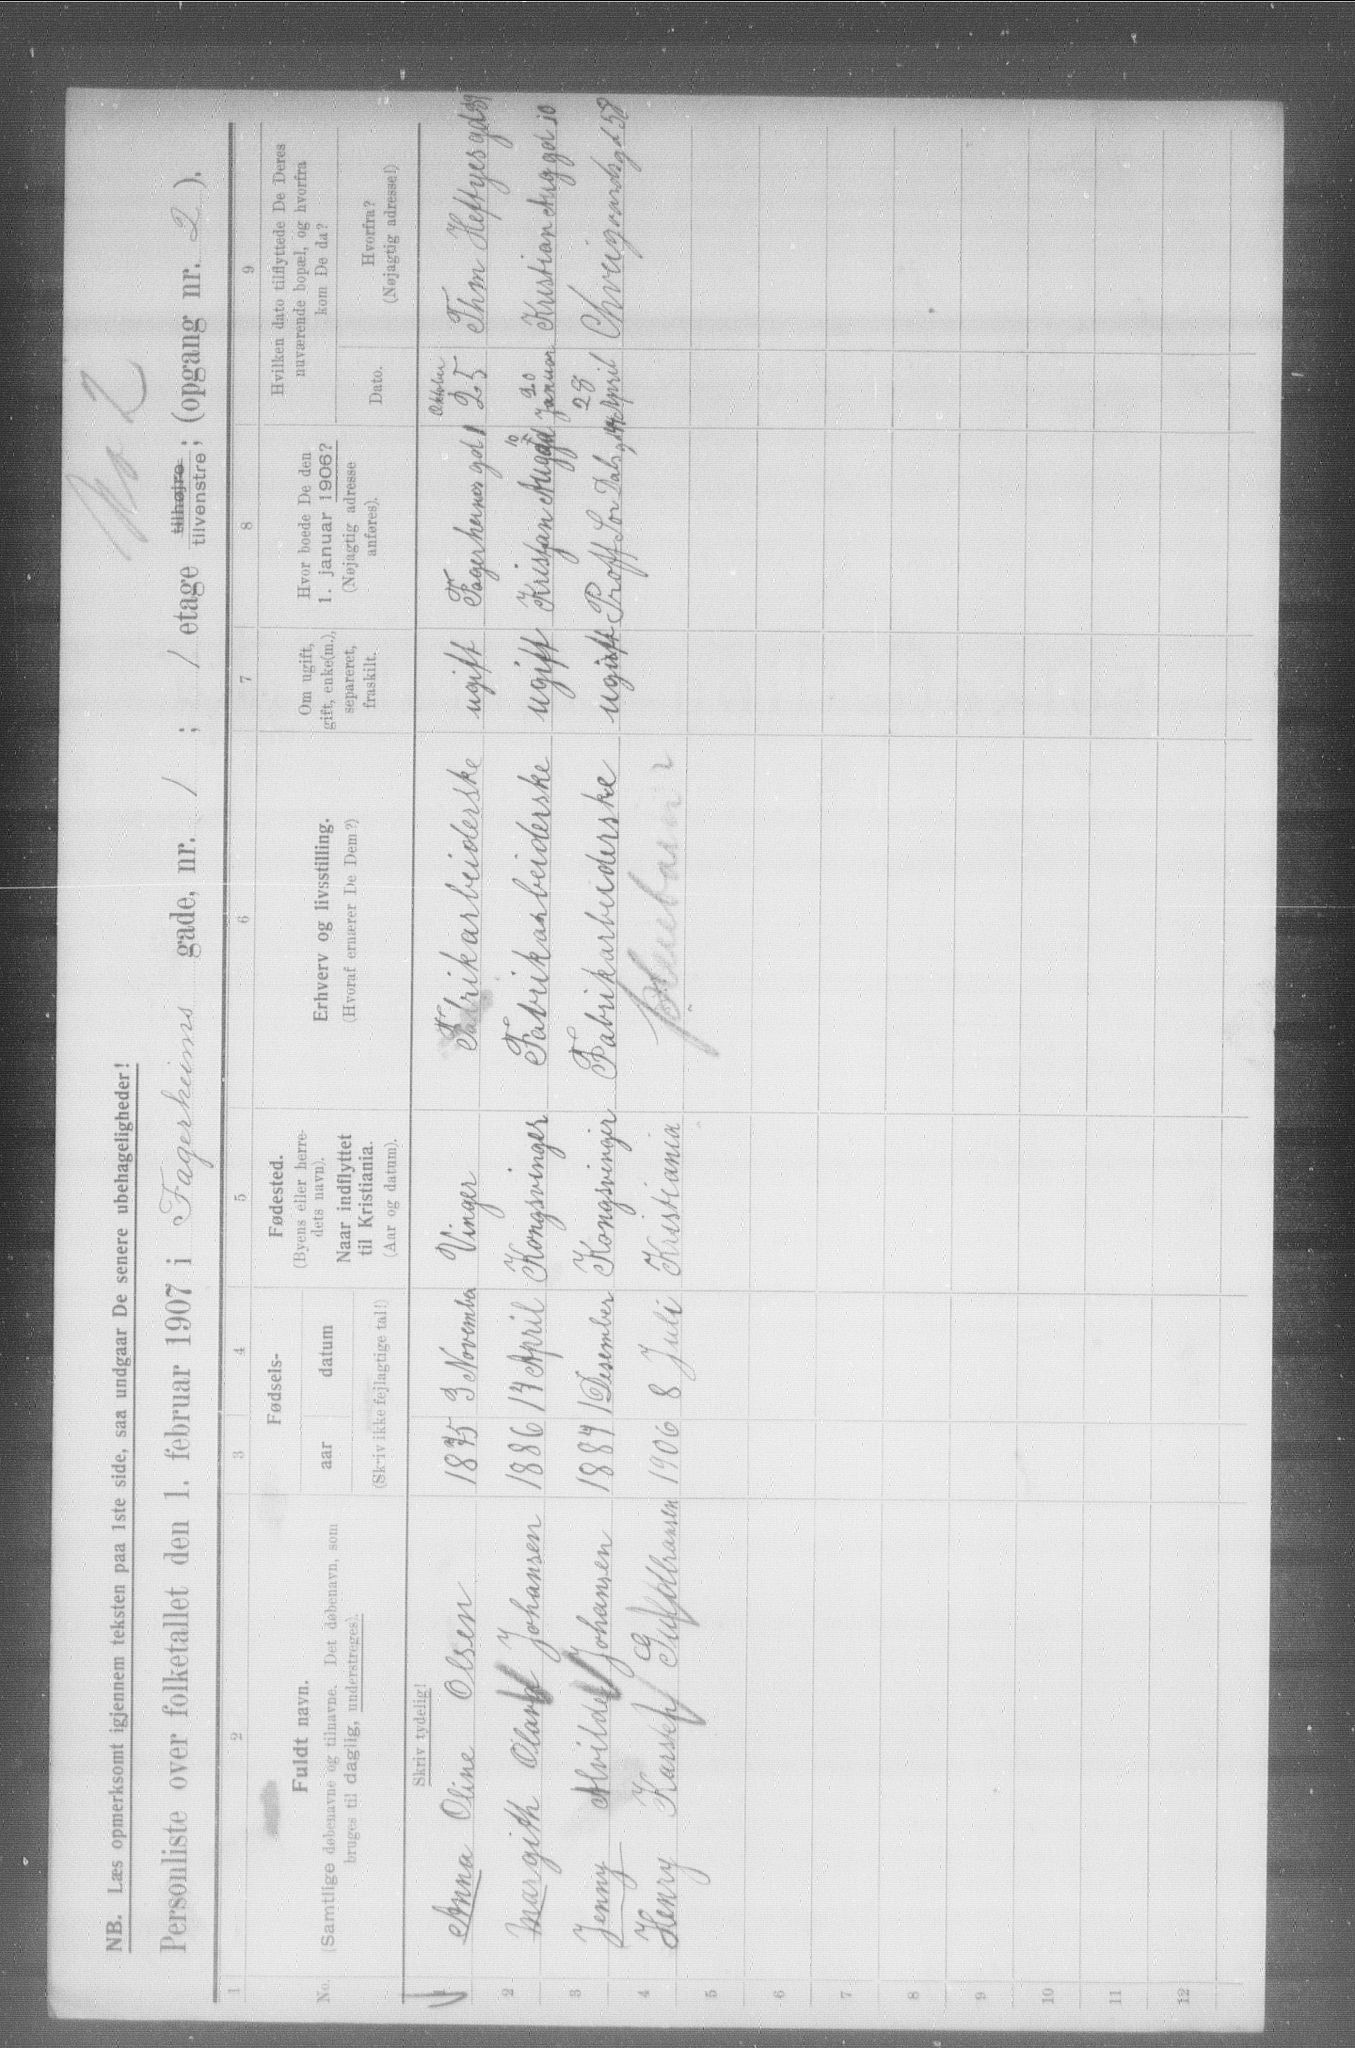 No 2
NB. Læs opmerksomt igjennem teksten paa 1ste side, saa undgaar De senere ubehageligheder!
Personliste over folketallet den 1. februar 1907 i Fagerheims gade, nr. 1 ; 1 etage tilhøjre tilvenstre ; (opgang nr. 2 ).
1 2 3 4 5 6 7 8 9
No.
Fuldt navn.
(Samtlige døbenavne og tilnavne. Det døbenavn, som
bruges til daglig, understreges).
Fødsels-
aar datum
(Skriv ikke fejlagtige tal!)
Fødested.
(Byens eller herre-
dets navn).
Naar indflyttet
til Kristiania.
(Aar og datum).
Erhverv og livsstilling.
(Hvoraf ernærer De Dem?)
Om ugift,
gift, enke(m.),
separeret,
fraskilt.
Hvor boede De den
1. januar 1906?
(Nøjagtig adresse
anføres).
Hvilken dato tilflyttede De Deres
nuværende bopæl, og hvorfra
kom De da?
Dato.
Hvorfra?
(Nøjagtig adresse!)
Skriv tydelig!
1 Anna Oline Olsen 1875 3 November Vinger Fabrikarbeiderske ugift Fagerheimsgd 1 25 Oktober Thm Heftyesgd 39
2 Margith Johansen 1886 17 April Kongsvinger Fabrikarbeiderske ugift Kristjan Auggd 10 20 Januar Kristian Auggd 10
3 Jenny Alvilde Johansen 1887 1 Desember Kongsvinger Fabrikarbeiderske ugift Proff Dahsg 28 April
4 Henry 1906 8 Juli Kristiania
5
6
7
8
9
10
11
12